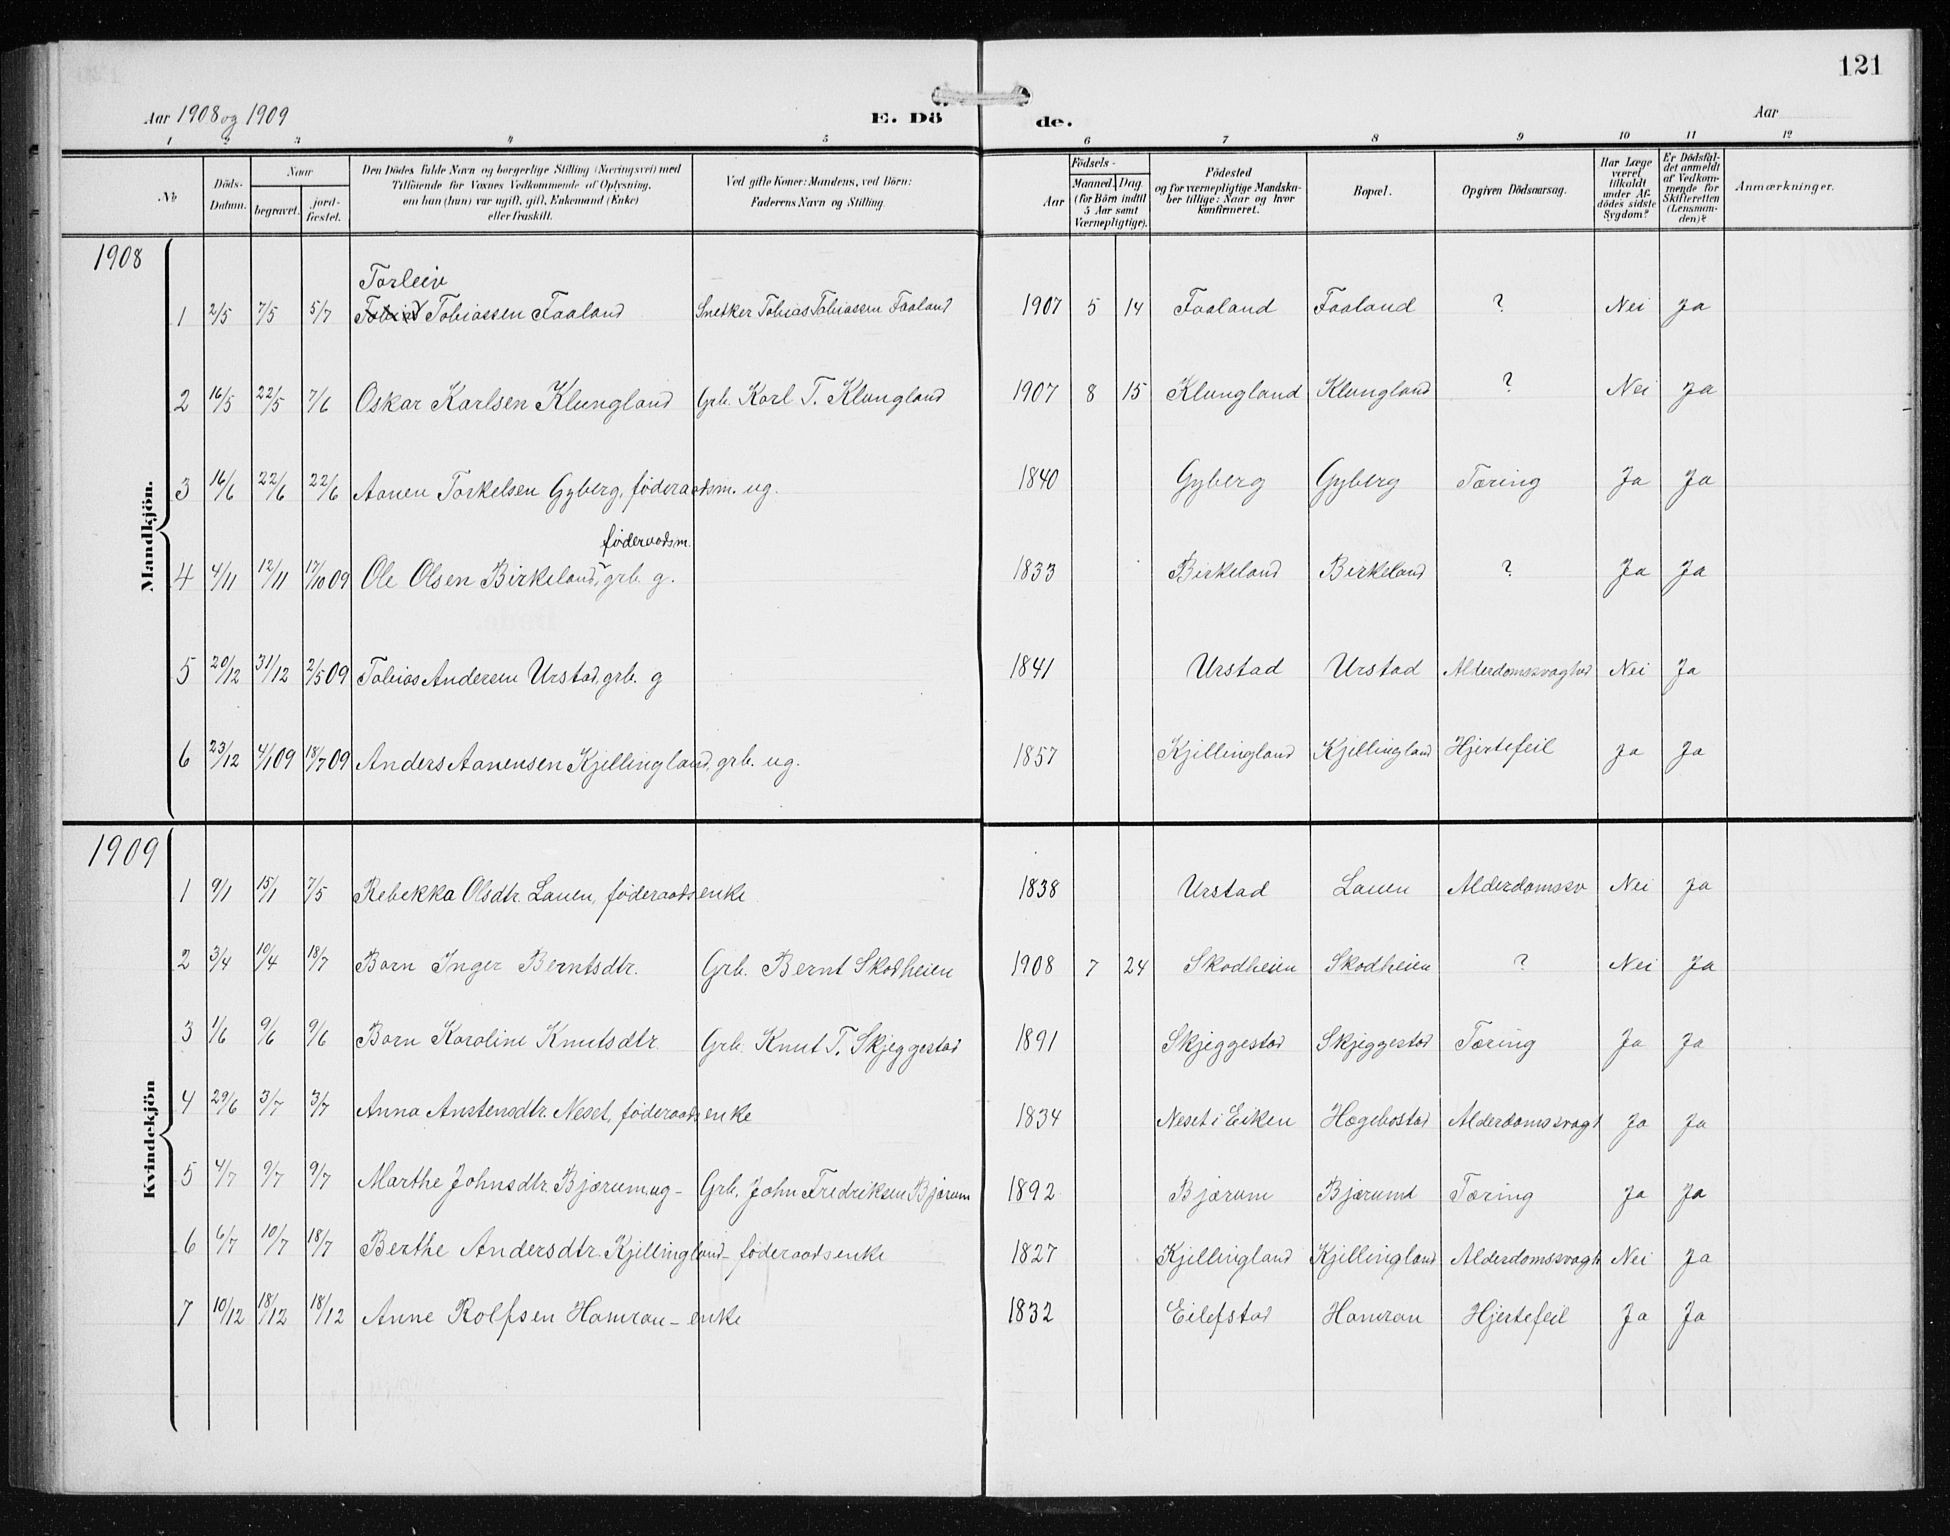 121
Aar 1908 og 1909 E. Dö de. Aar
1 2 3 4 5 6 7 8 9 10 11 12
No
Döds-Datum.
Naar
begravet.
jord-fæstet.
Den Dödes fulde Navn og borgerlige Stilling (Næringsvei) med
Tilföiende for Voxnes Vedkommende af Oplysning,
om han (hun) var ugift, gift, Enkemand (Enke)
eller fraskilt.
Ved gifte Koner: Mandens, ved Börn:
Faderens Navn og Stilling.
Födsels-
Aar
Maaned. Dag.
(for Börn indtil
5 Aar samt
Værnepligtige).
Födested
og for værnepligtige Mandska-
ber tillige: Naar og hvor
konfirmeret.
Bopæl.
Opgiven Dödsaarsag.
Har Læge
været
tilkaldt
under Af-
dödes sidste
Sygdom?
Er Dödsfal-
det anmeldt
af Vedkom-
mende for
Skifteretten
(Lensman-
den)?
Anmærkninger.
1908
Mandkjön.
Torleiv
1 2/5 7/5 5/7 Tobias Tobiassen Faaland Snetker Tobias Tobiassen Faaland 1907 5 14 Faaland Faaland ? Nei Ja
2 16/5 22/5 7/6 Oskar Karlsen Klungland Grb. Karl T. Klungland 1907 8 15 Klungland Klungland ? Nei Ja
3 16/6 22/6 22/6 Aanen Torkelsen Gyberg, føderaadsm. ug. 1840 Gyberg Gyberg Tæring Ja Ja
føderaadsm.
4 4/11 12/11 17/10 09 Ole Olsen Birkeland, grb. g. 1833 Birkeland Birkeland ? Ja Ja
5 20/12 31/12 2/5 09 Tobias Andersen Urstad, grb. g 1841 Urstad Urstad Alderdomssvaghed Nei Ja
6 23/12 4/1 09 18/7 09 Anders Aanensen Kjellingland, grb. ug. 1857 Kjillingland Kjillingland Hjertefeil Ja Ja
1909
Kvindekjön
1 9/1 15/1 7/5 Rebekka Olsdtr. Lauen, føderaadsenke 1838 Urstad Lauen Alderdomssv Nei Ja
2 3/4 10/4 18/7 Barn Inger Berntsdtr. Grb. Bernt Skodheien 1908 7 24 Skodheien Skodheien ? Nei Ja
3 1/6 9/6 9/6 Barn Karoline Knutsdtr. Grb. Knut T. Skjeggestad 1891 Skjeggestad Skjeggestad Tæring Ja Ja
4 29/6 3/7 3/7 Anna Anstensdtr. Neset, føderaadsenke 1834 Neset i Eiken Hægebostad Alderdomssvagh Ja Ja
5 4/7 9/7 9/7 Marthe Johnsdtr. Bjærum ug- Grb. John Fredriksen Bjærum 1892 Bjærum Bjærum Tæring Ja Ja
6 6/7 10/7 18/7 Berthe Andersdtr. Kjillingland - føderaadsenke 1827 Kjellingland Kjellingland Alderdomssvagh Nei Ja
7 10/12 18/12 18/12 Anne Rolfsen Hamran - enke 1832 Eilefstad Hamran Hjertefeil Ja Ja